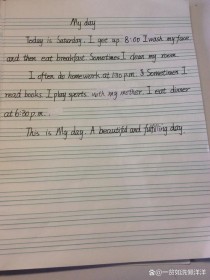 My day
Today is Saturday. I get up 8:00 I wash my face
and then eat breakfast. Sometimes I clean my room.
I often do homework at 1:00 p.m. Sometimes I
read books. I play sports with my mother. I eat dinner
at 6:30 p.m.
This is My day. A beautiful and fulfilling day.